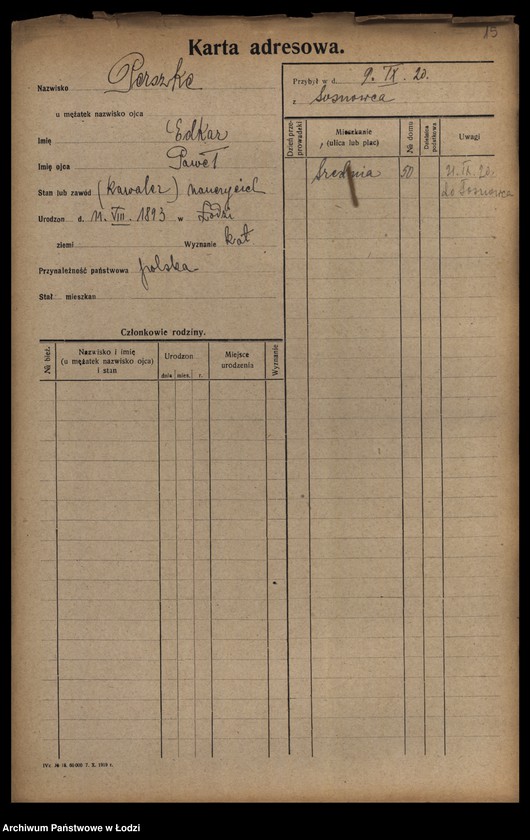 15
Karta adresowa.
Nazwisko Perszke
u mężatek nazwisko ojca
Imię Edkar
Imię ojca Paweł
Stan lub zawód (kawaler) nauczyciel
Urodzon d. 11. VIII. 1893 w Łodzi
ziemi Wyznanie kat
Przynależność państwowa polska
Stał. mieszkan.
Przybył w d. 9. IX. 20.
z Sosnowca
Dzień przeprowadzki
Mieszkanie (ulica lub plac)
№ domu
Dzielnica podatkowa
Uwagi
Średnia 50 21. IX. 20.
do Sosnowca
Członkowie rodziny.
№ bież.
Nazwisko i imię (u mężatek nazwisko ojca) i stan
Urodzon
dnia mies. r.
Miejsce urodzenia
Wyznanie
Archiwum Państwowe w Łodzi